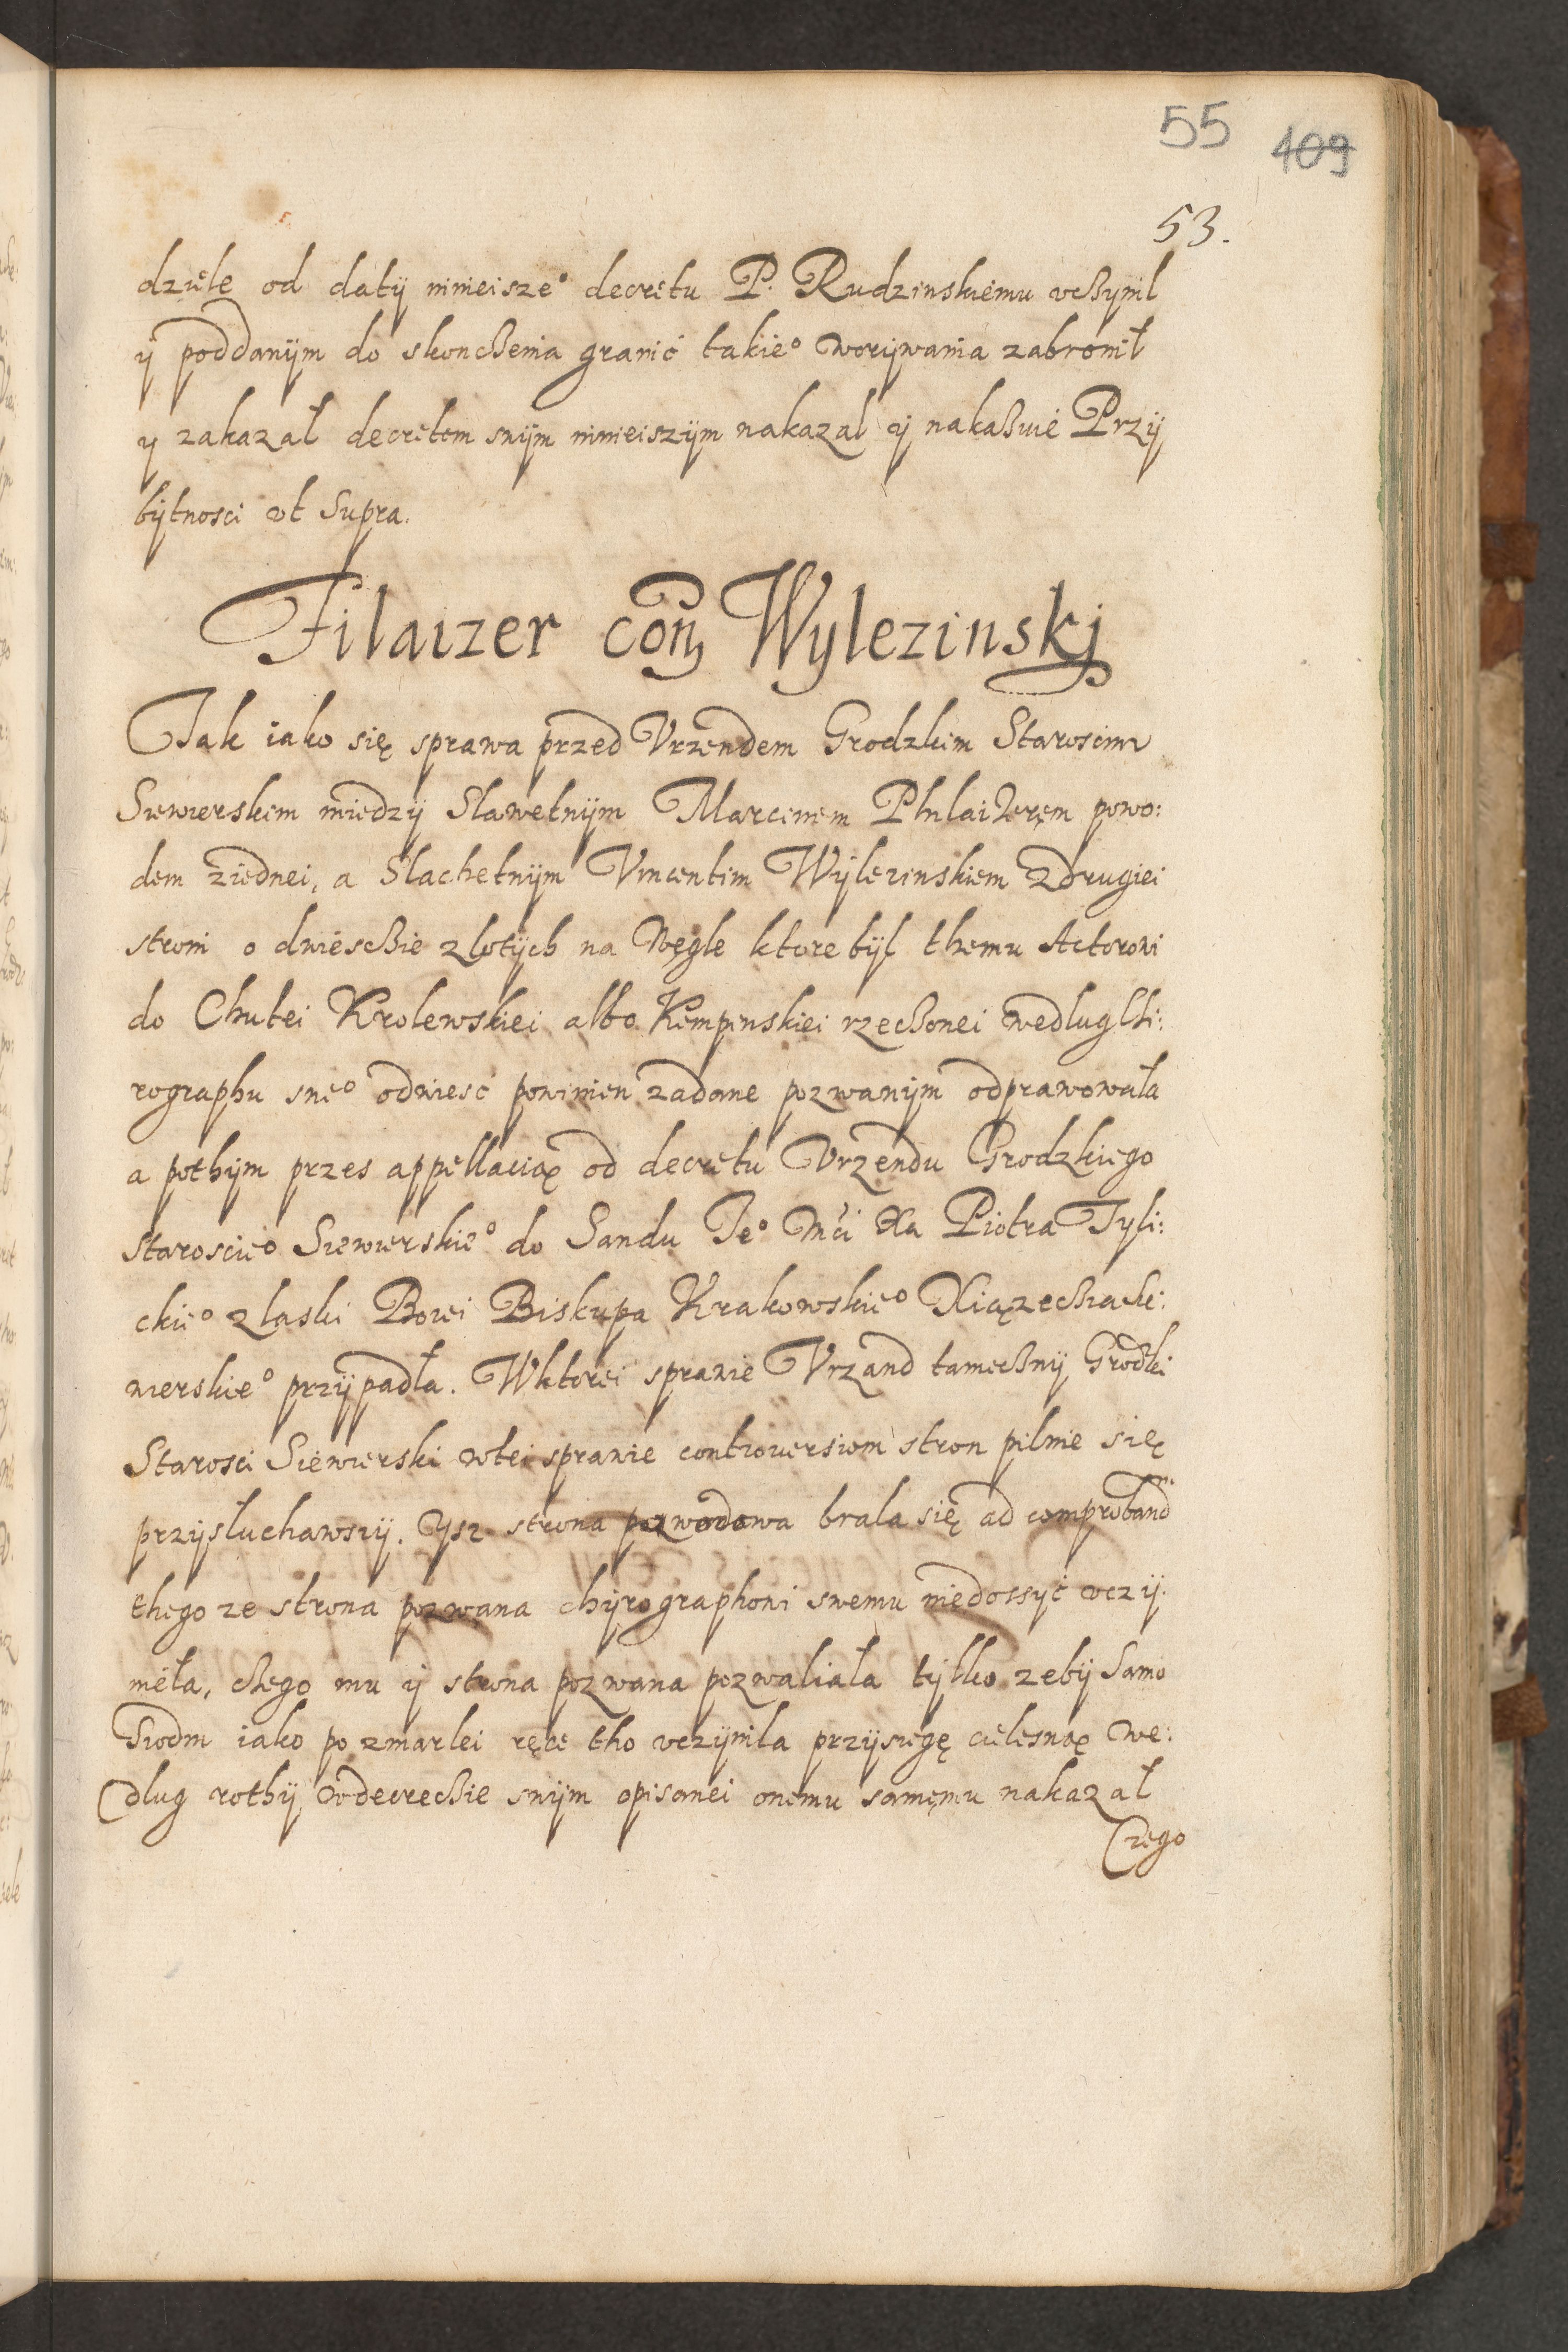 55 409
53.
dziele od daty ninieisze° decretu P. Rudzinskiemu vczynil
ÿ poddanÿm do skonczenia granić takie° worÿwania zabronił
y zakazał decretem swÿm ninieiszÿm nakazal ÿ nakazuie Przÿ
bÿtnosci vt Supra.
Filaizer con Wylezinskj
Jak iako się sprawa przed Vrzendem Grodzkim Staroscim
Siewierskim miedzÿ Slawetnÿm Marcinem Philaizerem powo:
dem ziednei, a Slachetnÿm Vincentim Wÿlezinskiem zdrugiei
stroni o dwiesczie zlotÿch na Węgle ktore bÿl themu Actorowi
do Chutei Krolewskiei albo Kempinskiei rzeczonei wedlug Chi:
rographu swe° odwiesć powinien zadane pozwanÿm odprawowała
a pothÿm przes appellacią od decretu Vrzendu Grodzkiego
staroscie° Siewierskie° do Sandu Je° Mći Xa Piotra Tyli:
ckie° zlaski Bozei Biskupa Krakowskie° Xiązecia Sie:
wierskie° przÿpadła. Wktorei sprawie Vrzand tamecznÿ Grodzki
Starosci Siewierski wtei sprawie controuersiom stron pilnie się
przÿsłuchawszÿ. Ysz strona powodowa brala się ad comproband
thego ze strona pozwana chÿrographowi swemu niedossyć vczÿ:
nieła, czego mu ÿ strona pozwana pozwaliała tÿlko zebÿ samo
Siodm iako po zmarlei ręce tho vczÿnila przÿsięgę cielesną we:
dlug rothÿ wdecreczie swÿm opisanei onemu samemu nakazał
Czego